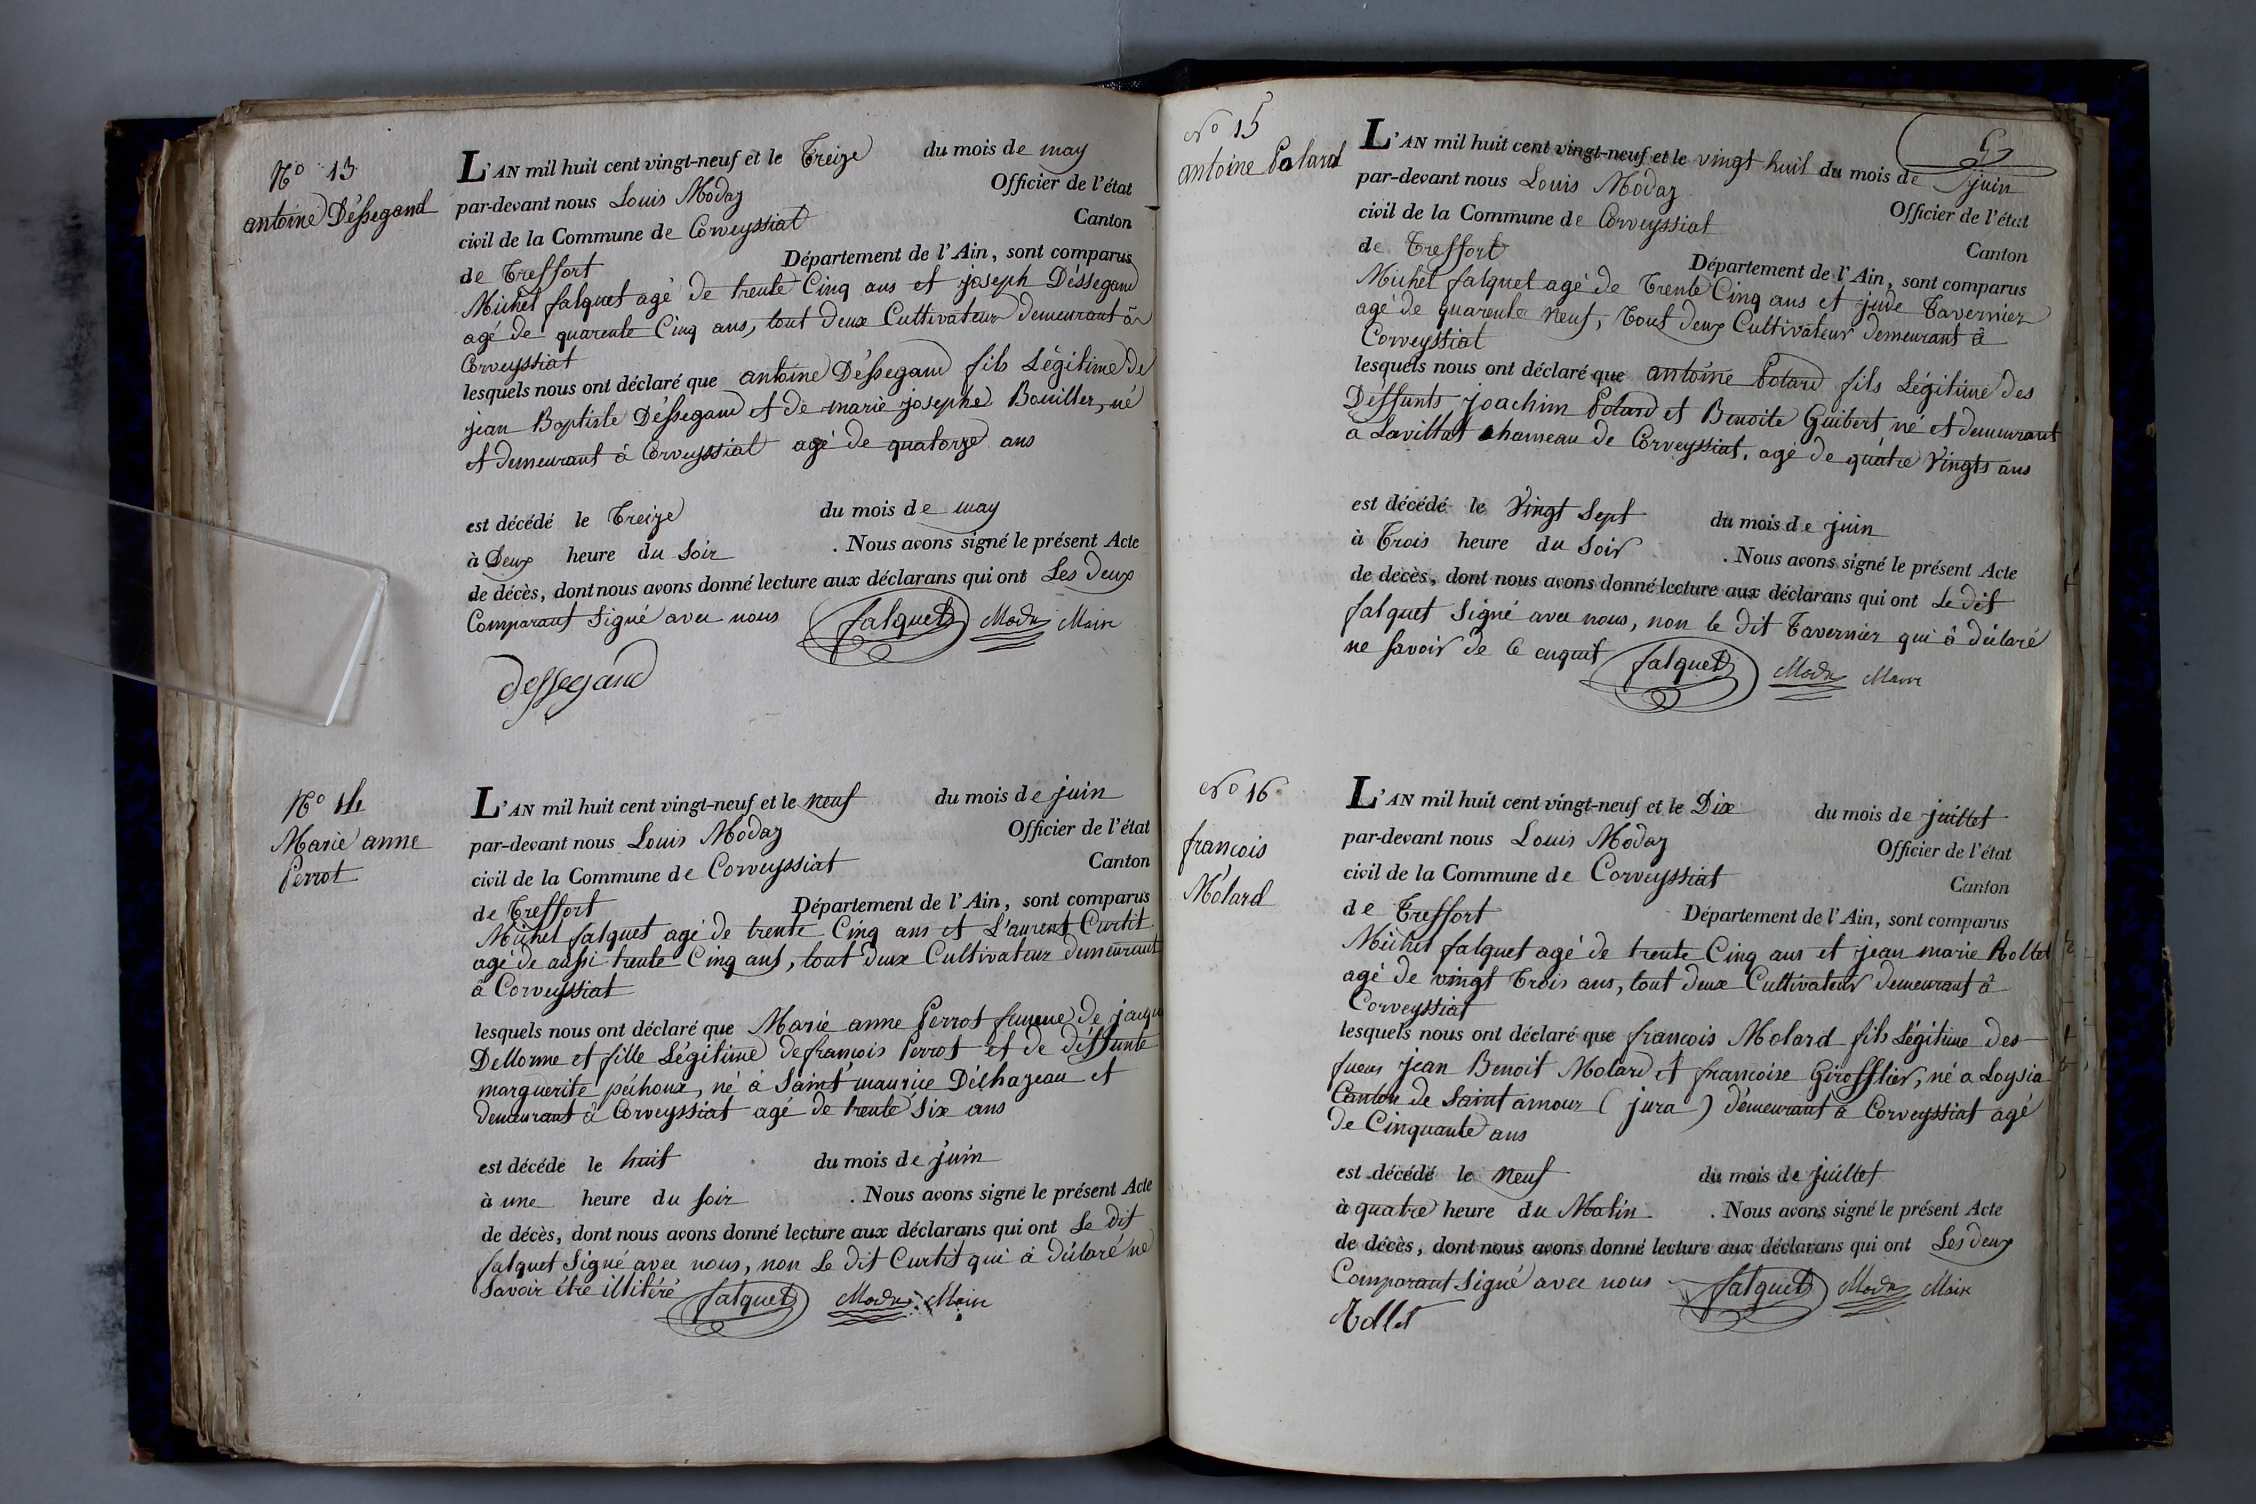 N° 13
antoine Déssegand
L'AN mil huit cent vingt-neuf et le Treize du mois de may
par-devant nous Louis Moday Officier de l'état
civil de la Commune de Corveyssiat Canton
de Treffort Département de l'Ain, sont comparus
Michel falquet agé de trente Cinq ans et joseph Déssegand
agé de quarente Cinq ans, tout deux Cultivateur demeurant â
Corveyssiat
lesquels nous ont déclaré que antoine Déssegand fils Légitime de
jean Baptiste Déssegand et de marie josephe Bouiller, né
et demeurant â Corveyssiat agé de quatorze ans
est décédé le Treize du mois de may
à Deux heure du Soir . Nous avons signé le présent Acte
de décès, dont nous avons donné lecture aux déclarans qui ont Les deux
Comparant Signé avec nous falquet Moda Maire
dessegand
N° 14
Marie anne
Perrot
L'AN mil huit cent vingt-neuf et le neuf du mois de juin
par-devant nous Louis Moday Officier de l'état
civil de la Commune de Corveyssiat Canton
de Treffort Département de l'Ain, sont comparus
Michel falquet agé de trente Cinq ans et L'aurent Curtit
agé de aussi trente Cinq ans, tout deux Cultivateur demeurant
â Corveyssiat
lesquels nous ont déclaré que Marie anne Perrot femme de jaque
Dellorme et fille Légitime de francois Perrot et de déffunte
marguerite péchoux, né â Saint maurice Déchazeau et
demeurant â Corveyssiat agé de trente Six ans
est décédé le huit du mois de juin
à une heure du Soir . Nous avons signé le présent Acte
de décès, dont nous avons donné lecture aux déclarans qui ont Le dit
falquet Signé avec nous, non Le dit Curtit qui â déclaré ne
Savoir être illitéré falquet Moda Maire
N° 15
antoine Polard
L'AN mil huit cent vingt-neuf et le vingt huit du mois de juin
par-devant nous Louis Moday Officier de l'état
civil de la Commune de Corveyssiat Canton
de Treffort Département de l'Ain, sont comparus
Michel falquet agé de Trente Cinq ans et jude Tavernier
agé de quarente neuf, Tout deux Cultivateur demeurant â
Corveyssiat
lesquels nous ont déclaré que antoine Polard fils Légitime des
Déffunts joachim Polard et Benoite Guibert né et demeurant
a Lavillat hameau de Corveyssiat, agé de quatre Vingts ans
est décédé le Vingt Sept du mois de juin
à Trois heure du Soir . Nous avons signé le présent Acte
de decès, dont nous avons donné lecture aux déclarans qui ont Le dit
falquet Signé avec nous, non le dit Tavernier qui â déclaré
ne Savoir de Ce enquit falquet Moda Maire
N° 16
francois
Molard
L'AN mil huit cent vingt-neuf et le Dix du mois de juillet
par-devant nous Louis Moday Officier de l'état
civil de la Commune de Corveyssiat Canton
de Treffort Département de l'Ain, sont comparus
Michel falquet agé de trente Cinq ans et jean marie Rollet
agé de vingt Trois ans, tout deux Cultivateur demeurant â
Corveyssiat
lesquels nous ont déclaré que francois Molard fils Légitime des
fueus jean Benoit Molard et francoise Giroffllier, né a Loysia
Canton de Saint amour (jura) démeurant â Corveyssiat agé
de Cinquante ans
est décédé le neuf du mois de juillet
à quatre heure du Matin . Nous avons signé le présent Acte
de décès, dont nous avons donné lecture aux déclarans qui ont Les deux
Comparant Signé avec nous falquet Moda Maire
Rollet